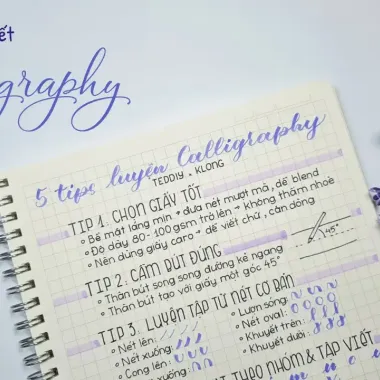 ết
graphy
5 tips luyện Calligraphy
TEDDIY x KLONG
TIP 1. CHỌN GIẤY TỐT
Bề mặt láng mịn → đưa nét mượt mà, dễ blend
Độ dày 80-100gsm trở lên → không thấm nhoè
Nên dùng giấy caro → dễ viết chữ, căn dòng
TIP 2. CẦM BÚT ĐÚNG
Thân bút song song đường kẻ ngang
Thân bút tạo với giấy một góc 45°
45°
TIP 3. LUYỆN TẬP TỪ NÉT CƠ BẢN
Nét lên:
Nét xuống:
Cong lên:
xuống:
Lượn sóng:
Nét oval:
Khuyết trên:
Khuyết dưới:
THEO NHÓM & TẬP VIẾT